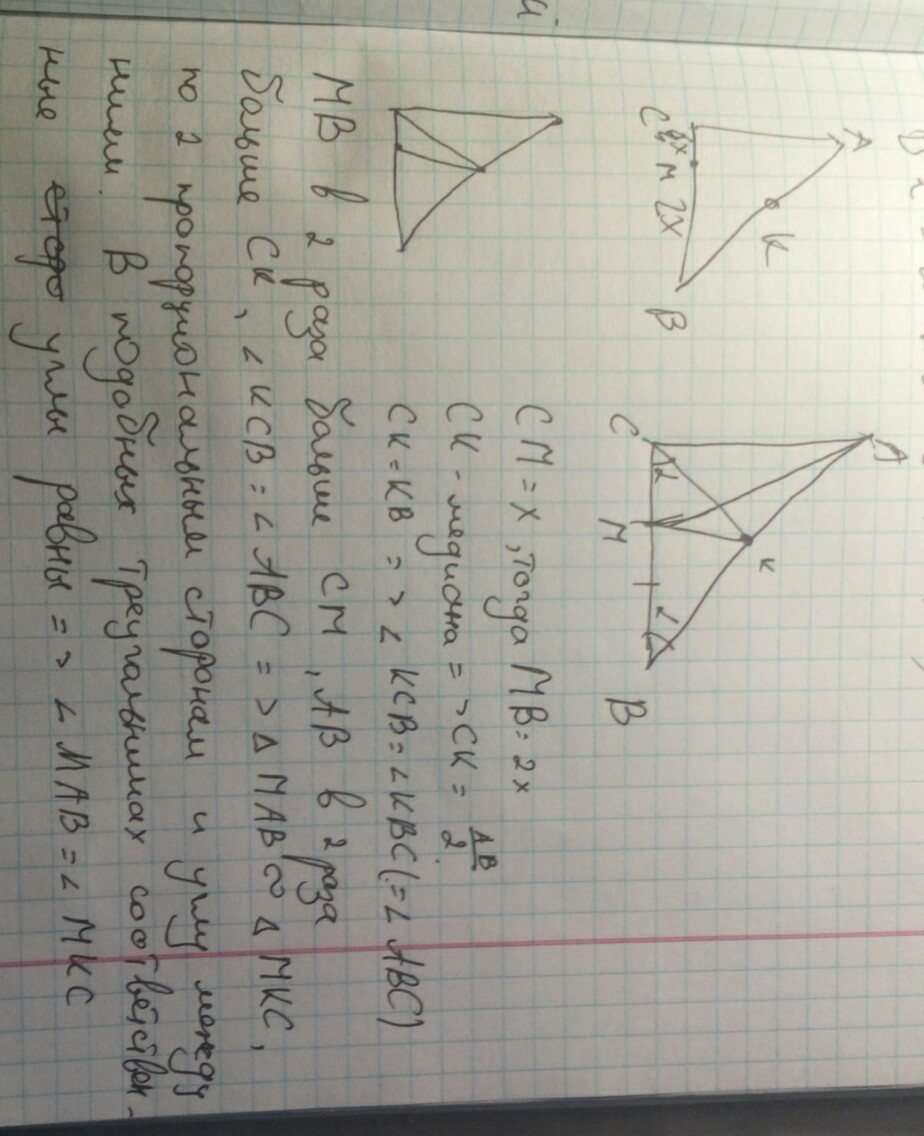 A
K
C x M 2X B
A
K
C M B
CM = x, тогда MB = 2x
CK - медиана => CK = AB/2
CK = KB => ∠ KCB = ∠ KBC (= ∠ ABC)
MB в 2 раза больше CM, AB в 2 раза
больше CK, ∠ KCB = ∠ ABC => Δ MAB ∞ Δ MKC,
по 2 пропорциональным сторонам и углу между
ними. В подобных треугольниках соответствен-
ные углы равны => ∠ MAB = ∠ MKC